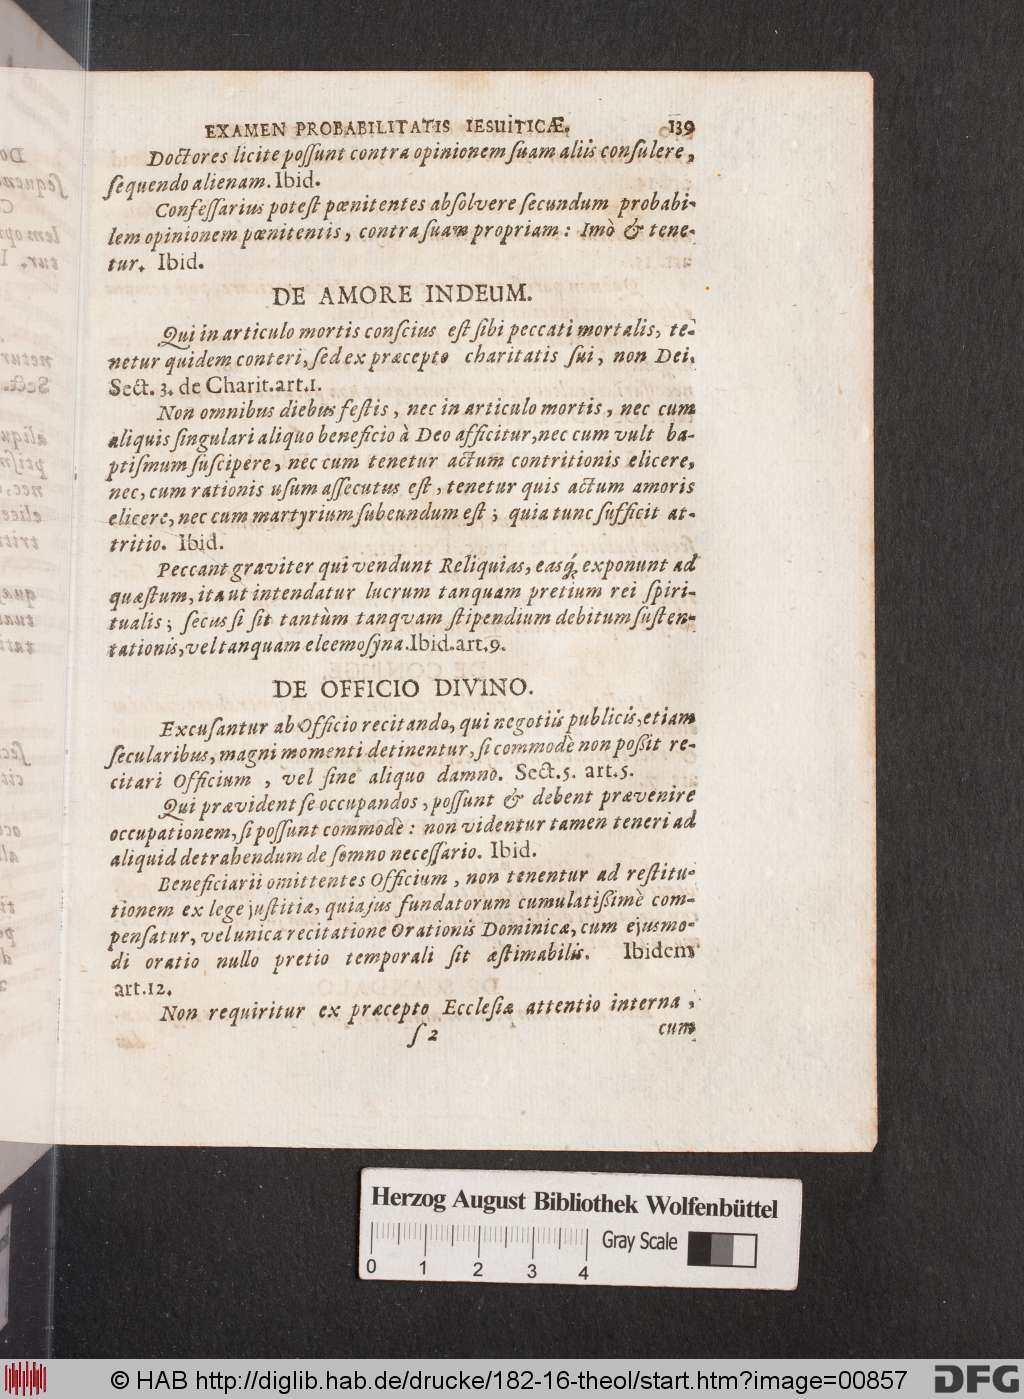 EXAMEN PROBABILITATIS IESUITICÆ. 139
Doctores licite poſſunt contra opinionem ſuam aliis conſulere,
ſequendo alienam. Ibid.
Confeſſarius poteſt pœnitentes abſolvere ſecundum probabi-
lem opinionem pœnitentis, contra ſuam propriam: Imò & tene-
tur. Ibid.
DE AMORE INDEUM.
Qui in articulo mortis conſcius eſt ſibi peccati mortalis, te-
netur quidem conteri, ſed ex præcepto charitatis ſui, non Dei.
Sect. 3. de Charit. art. 1.
Non omnibus diebus feſtis, nec in articulo mortis, nec cum
aliquis ſingulari aliquo beneficio à Deo afficitur, nec cum vult ba-
ptiſmum ſuſcipere, nec cum tenetur actum contritionis elicere,
nec, cum rationis uſum aſſecutus eſt, tenetur quis actum amoris
elicere, nec cum martyrium ſubeundum eſt; quia tunc ſufficit at-
tritio. Ibid.
Peccant graviter qui vendunt Reliquias, easq́; exponunt ad
quæſtum, ita ut intendatur lucrum tanquam pretium rei ſpiri-
tualis; ſecus ſi ſit tantùm tanqvam ſtipendium debitum ſuſten-
tationis, vel tanquam eleemoſyna. Ibid. art. 9.
DE OFFICIO DIVINO.
Excuſantur ab Officio recitando, qui negotiis publicis, etiam
ſecularibus, magni momenti detinentur, ſi commodè non poßit re-
citari Officium, vel ſine aliquo damno. Sect. 5. art. 5.
Qui prævident ſe occupandos, poſſunt & debent prævenire
occupationem, ſi poſſunt commodè: non videntur tamen teneri ad
aliquid detrahendum de ſomno neceſſario. Ibid.
Beneficiarii omittentes Officium, non tenentur ad reſtitu-
tionem ex lege juſtitiæ, quia jus fundatorum cumulatißimè com-
penſatur, vel unica recitatione Orationis Dominicæ, cum ejusmo-
di oratio nullo pretio temporali ſit æſtimabilis. Ibidem
art. 12.
Non requiritur ex præcepto Eccleſiæ attentio interna,
ſ 2 cum
Herzog August Bibliothek Wolfenbüttel
Gray Scale
0 1 2 3 4
© HAB http://diglib.hab.de/drucke/182-16-theol/start.htm?image=00857
DFG